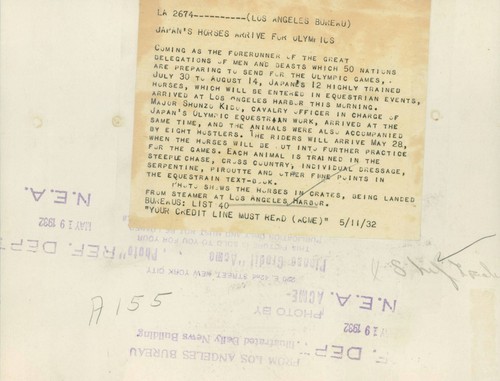 LA 2674----------(LOS ANGELES BUREAU)
JAPAN'S HORSES ARRIVE FOR OLYMPICS
COMING AS THE FORERUNNER OF THE GREAT
DELEGATIONS OF MEN AND BEASTS WHICH 50 NATIONS
ARE PREPARING TO SEND FOR THE OLYMPIC GAMES,
JULY 30 TO AUGUST 14, JAPAN'S 12 HIGHLY TRAINED
HORSES, WHICH WILL BE ENTERED IN EQUESTRIAN EVENTS,
ARRIVED AT LOS ANGELES HARBOR THIS MORNING.
MAJOR SHUNZO KIDO, CAVALRY OFFICER IN CHARGE OF
JAPAN'S OLYMPIC EQUESTRIAN WORK, ARRIVED AT THE
SAME TIME, AND THE ANIMALS WERE ALSO ACCOMPANIED
BY EIGHT HUSTLERS. THE RIDERS WILL ARRIVE MAY 28,
WHEN THE HORSES WILL BE PUT INTO FURTHER PRACTICE
FOR THE GAMES. EACH ANIMAL IS TRAINED IN THE
STEEPLE CHASE, CROSS COUNTRY, INDIVIDUAL DRESSAGE,
SERPENTINE, PIROUTTE AND OTHER FINE POINTS IN
THE EQUESTRIAN TEXT-BOOK.
PHOTO SHOWS THE HORSES IN CRATES, BEING LANDED
FROM STEAMER AT LOS ANGELES HARBOR.
BUREAUS: LIST 40
"YOUR CREDIT LINE MUST READ (ACME)" 5/11/32
N.E.A.
MAY 19 1932
REF. DEPT.
Please Credit "Acme Photo"
220 E. 42nd STREET, NEW YORK CITY
PHOTO BY
ACME
N.E.A.
MAY 19 1932
REF. DEPT.
A155
Illustrated Daily News Building
FROM LOS ANGELES BUREAU